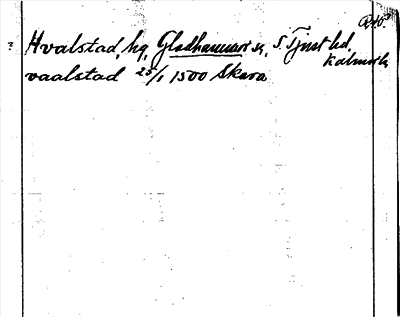 Hvalstad, hg, Gladhammar sn, S. Tjust hd,
Kalmar l.
vaalstad 25/1 1500 Skara